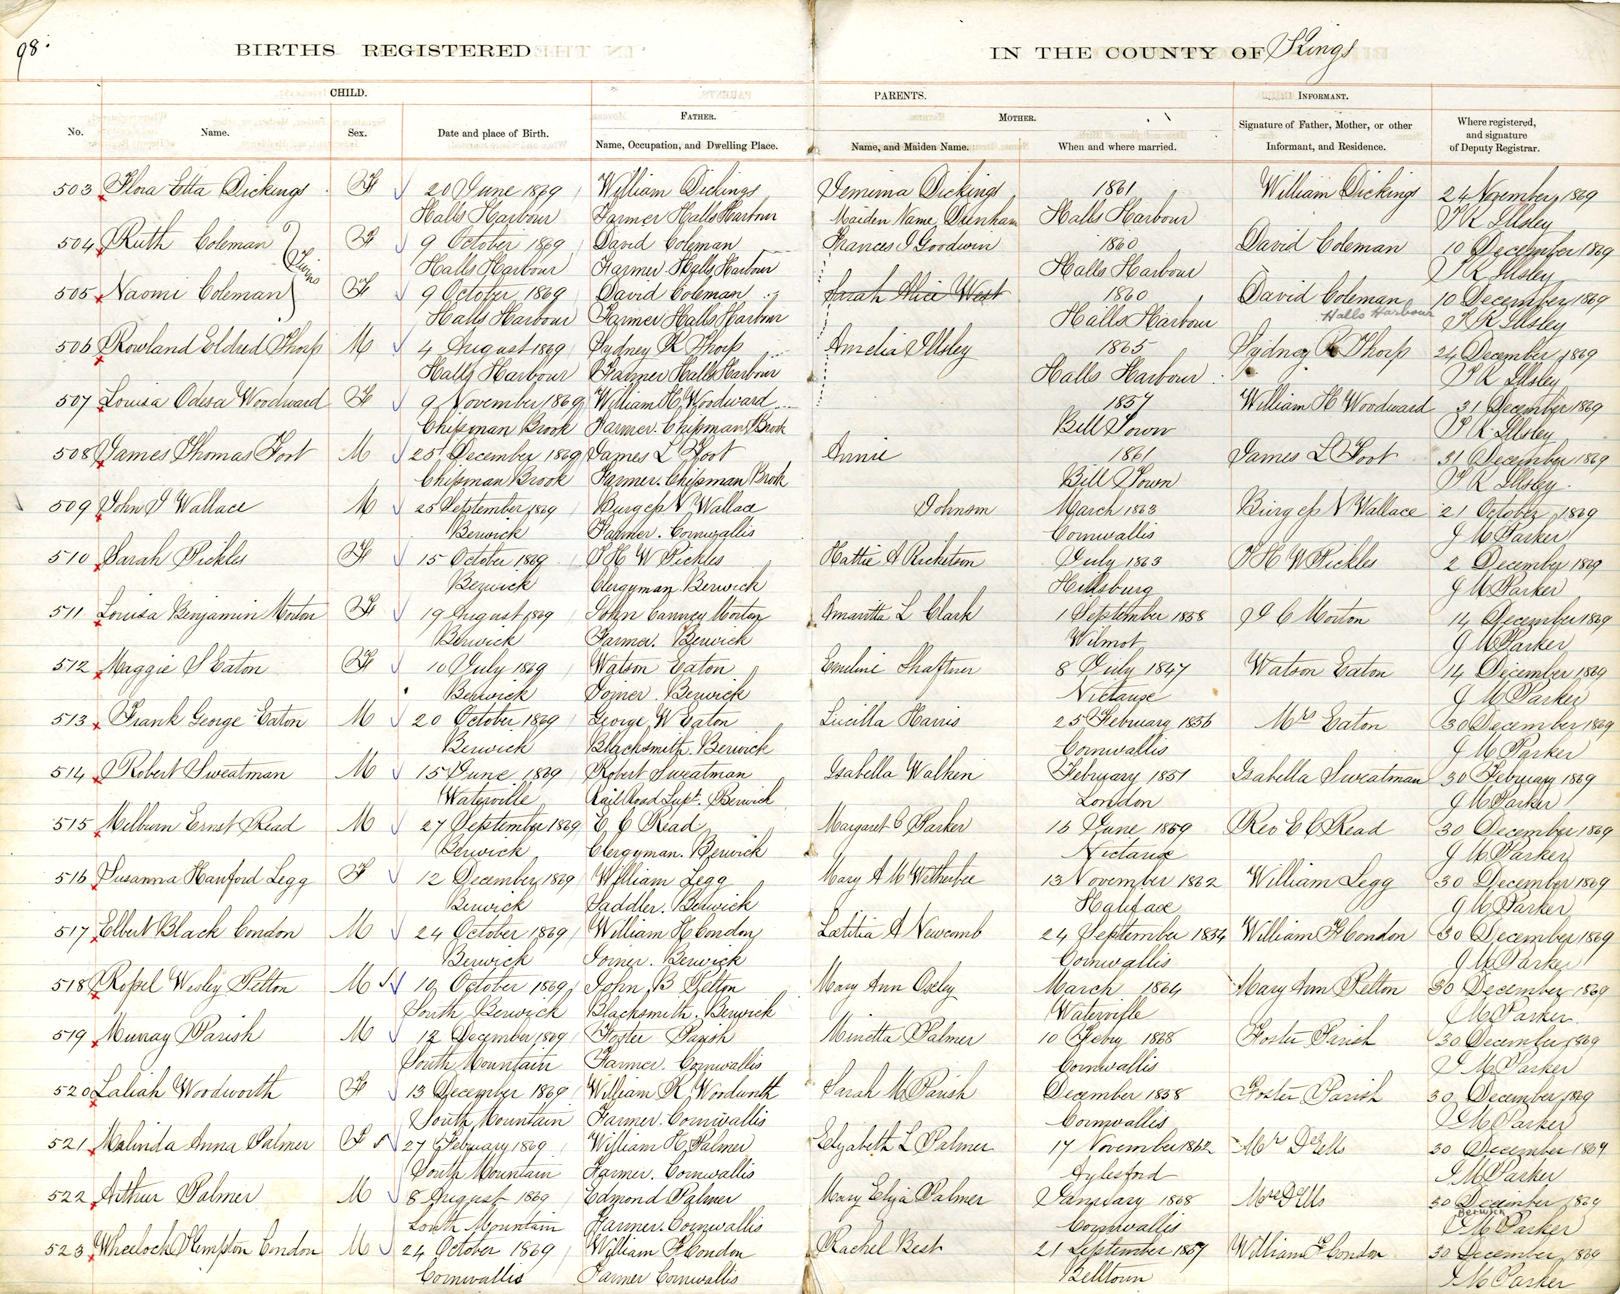 98.
BIRTHS REGISTERED
IN THE COUNTY OF Kings
CHILD.
PARENTS.
INFORMANT.
No.
Name.
Sex.
Date and place of Birth.
FATHER.
Name, Occupation, and Dwelling Place.
MOTHER.
Name, and Maiden Name.
When and where married.
Signature of Father, Mother, or other
Informant, and Residence.
Where registered,
and signature
of Deputy Registrar.
503 Flora Etta Dickings F 20 June 1869 William Dickings Jemima Dickings 1861 William Dickings 24 November 1869
Halls Harbour Farmer Halls Harbour Maiden Name Dunham Halls Harbour Illsley
504 Ruth Coleman F 9 October 1869 David Coleman Frances I Goodwin 1860 David Coleman 10 December 1869
Twins Halls Harbour Farmer Halls Harbour Halls Harbour Illsley
505 Naomi Coleman F 9 October 1869 David Coleman Sarah Alice West 1860 David Coleman 10 December 1869
Halls Harbour Farmer Halls Harbour Halls Harbour Halls Harbour Illsley
506 Rowland Eldred Thorp M 4 August 1869 Sydney R Thorp Amelia Illsley 1865 Sydney R Thorp 24 December 1869
Halls Harbour Farmer Halls Harbour Halls Harbour Illsley
507 Louisa Odesa Woodward F 9 November 1869 William H Woodward 1857 William H Woodward 31 December 1869
Chipman Brook Farmer. Chipman Brook Bill Town Illsley
508 James Thomas Foot M 25 December 1869 James L Foot Annie 1861 James L Foot 31 December 1869
Chipman Brook Farmer. Chipman Brook Bill Town Illsley.
509 John I Wallace M 25 September 1869 N Wallace Johnson March 1863 N Wallace 21 October 1869
Berwick Farmer. Cornwallis Cornwallis J M Parker
510 Sarah Pickles F 15 October 1869 H W Pickles Hattie A Ricketson July 1863 H W Pickles 2 December 1869
Berwick Clergyman. Berwick Hillsburg J M Parker
511 Louisa Benjamin Morton F 19 August 1869 John Morton L Clark 1 September 1858 J C Morton 14 December 1869
Berwick Farmer. Berwick Wilmot J M Parker
512 Maggie S Eaton F 10 July 1869 Watson Eaton Emeline Shaffner 8 July 1847 Watson Eaton 14 December 1869
Berwick Berwick Nictaux J M Parker
513 Frank George Eaton M 20 October 1869 George W Eaton Lucilla Harris 25 February 1856 Mrs Eaton 30 December 1869
Berwick Blacksmith. Berwick Cornwallis J M Parker
514 Robert Sweatman M 15 June 1869 Robert Sweatman Isabella Walken February 1851 Isabella Sweatman 30 February 1869
Waterville Rail Road Supt. Berwick London J M Parker
515 Melburn Ernst Read M 27 September 1869 E C Read Margaret C Parker 16 June 1859 Rev E C Read 30 December 1869
Berwick Clergyman. Berwick Nictaux J M Parker
516 Susanna Hanford Legg F 12 December 1869 William Legg Mary A Wetherbee 13 November 1862 William Legg 30 December 1869
Berwick Saddler. Berwick Halifax J M Parker
517 Elbert Black Condon M 24 October 1869 William H Condon Lætitia A Newcomb 24 September 1854 William H Condon 30 December 1869
Berwick Joiner. Berwick Cornwallis J M Parker
518 Wesley Pelton M 10 October 1869 John B Pelton Mary Ann March 1864 Mary Ann Pelton 30 December 1869
South Berwick Blacksmith. Berwick Waterville J M Parker
519 Murray Parish M 12 December 1869 Foster Parish Minetta Palmer 10 Febry 1868 Foster Parish 30 December 1869
South Mountain Farmer. Cornwallis Cornwallis J M Parker
520 Laliah Woodworth F 13 December 1869 William R Woodworth Sarah M Parish December 1858 Foster Parish 30 December 1869
South Mountain Farmer. Cornwallis Cornwallis J M Parker
521 Malinda Anna Palmer F 27 February 1869 William H Palmer Elizabeth L Palmer 17 November 1862 Mrs 30 December 1869
South Mountain Farmer. Cornwallis Aylesford J M Parker
522 Arthur Palmer M 8 August 1869 Edmond Palmer Mary Eliza Palmer January 1868 Mrs 30 December 1869
South Mountain Farmer. Cornwallis Cornwallis Berwick J M Parker
523 Wheelock Simpson Condon M 24 October 1869 William F Condon Rachel Best 21 September 1867 William F Condon 30 December 1869
Cornwallis Farmer Cornwallis Belltown J M Parker